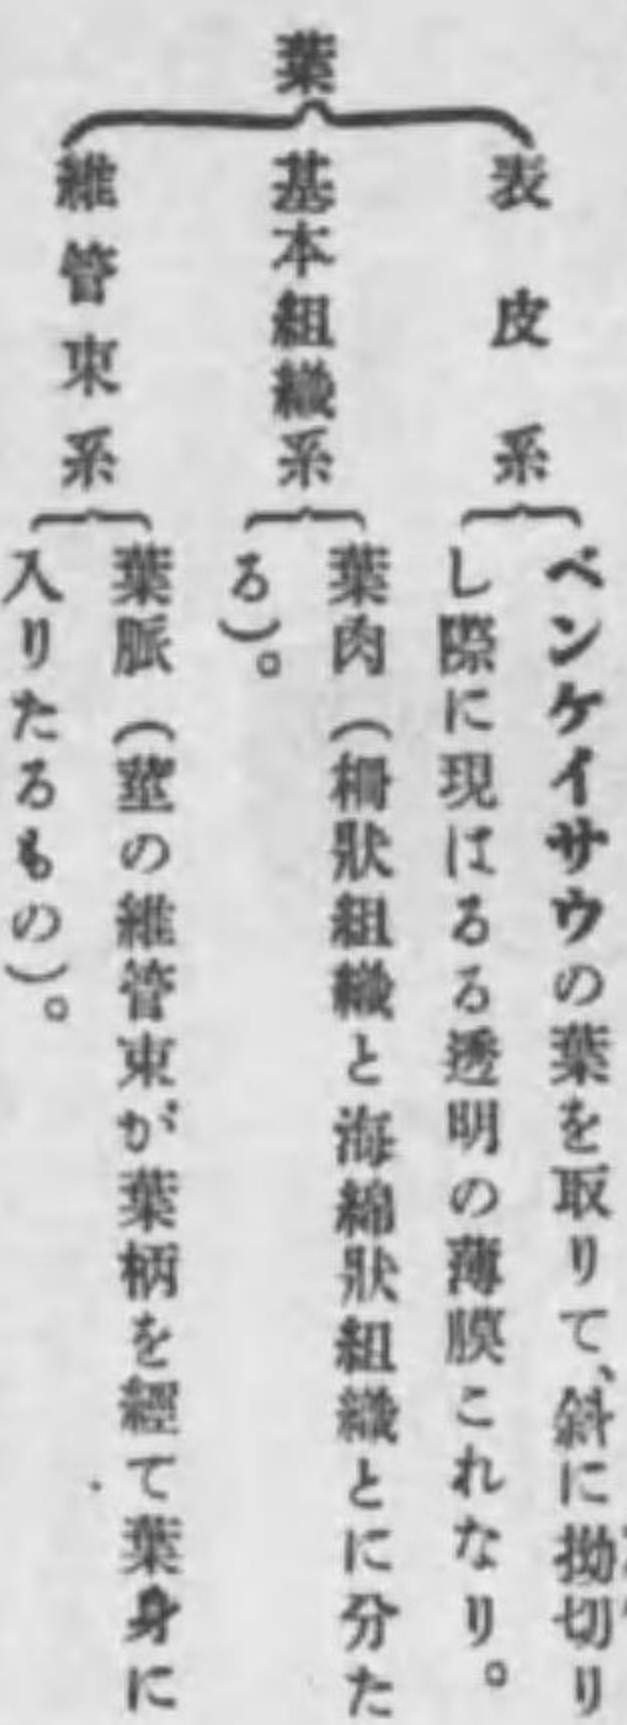 葉
表皮系
ベンケイサウの葉を取りて、斜に拗切り
し際に現はるる透明の薄膜これなり。
基本組織系
葉肉(柵狀組織と海綿狀組織とに分た
る)。
維管束系
葉脈(莖の維管束が葉柄を經て葉身に
入りたるもの)。